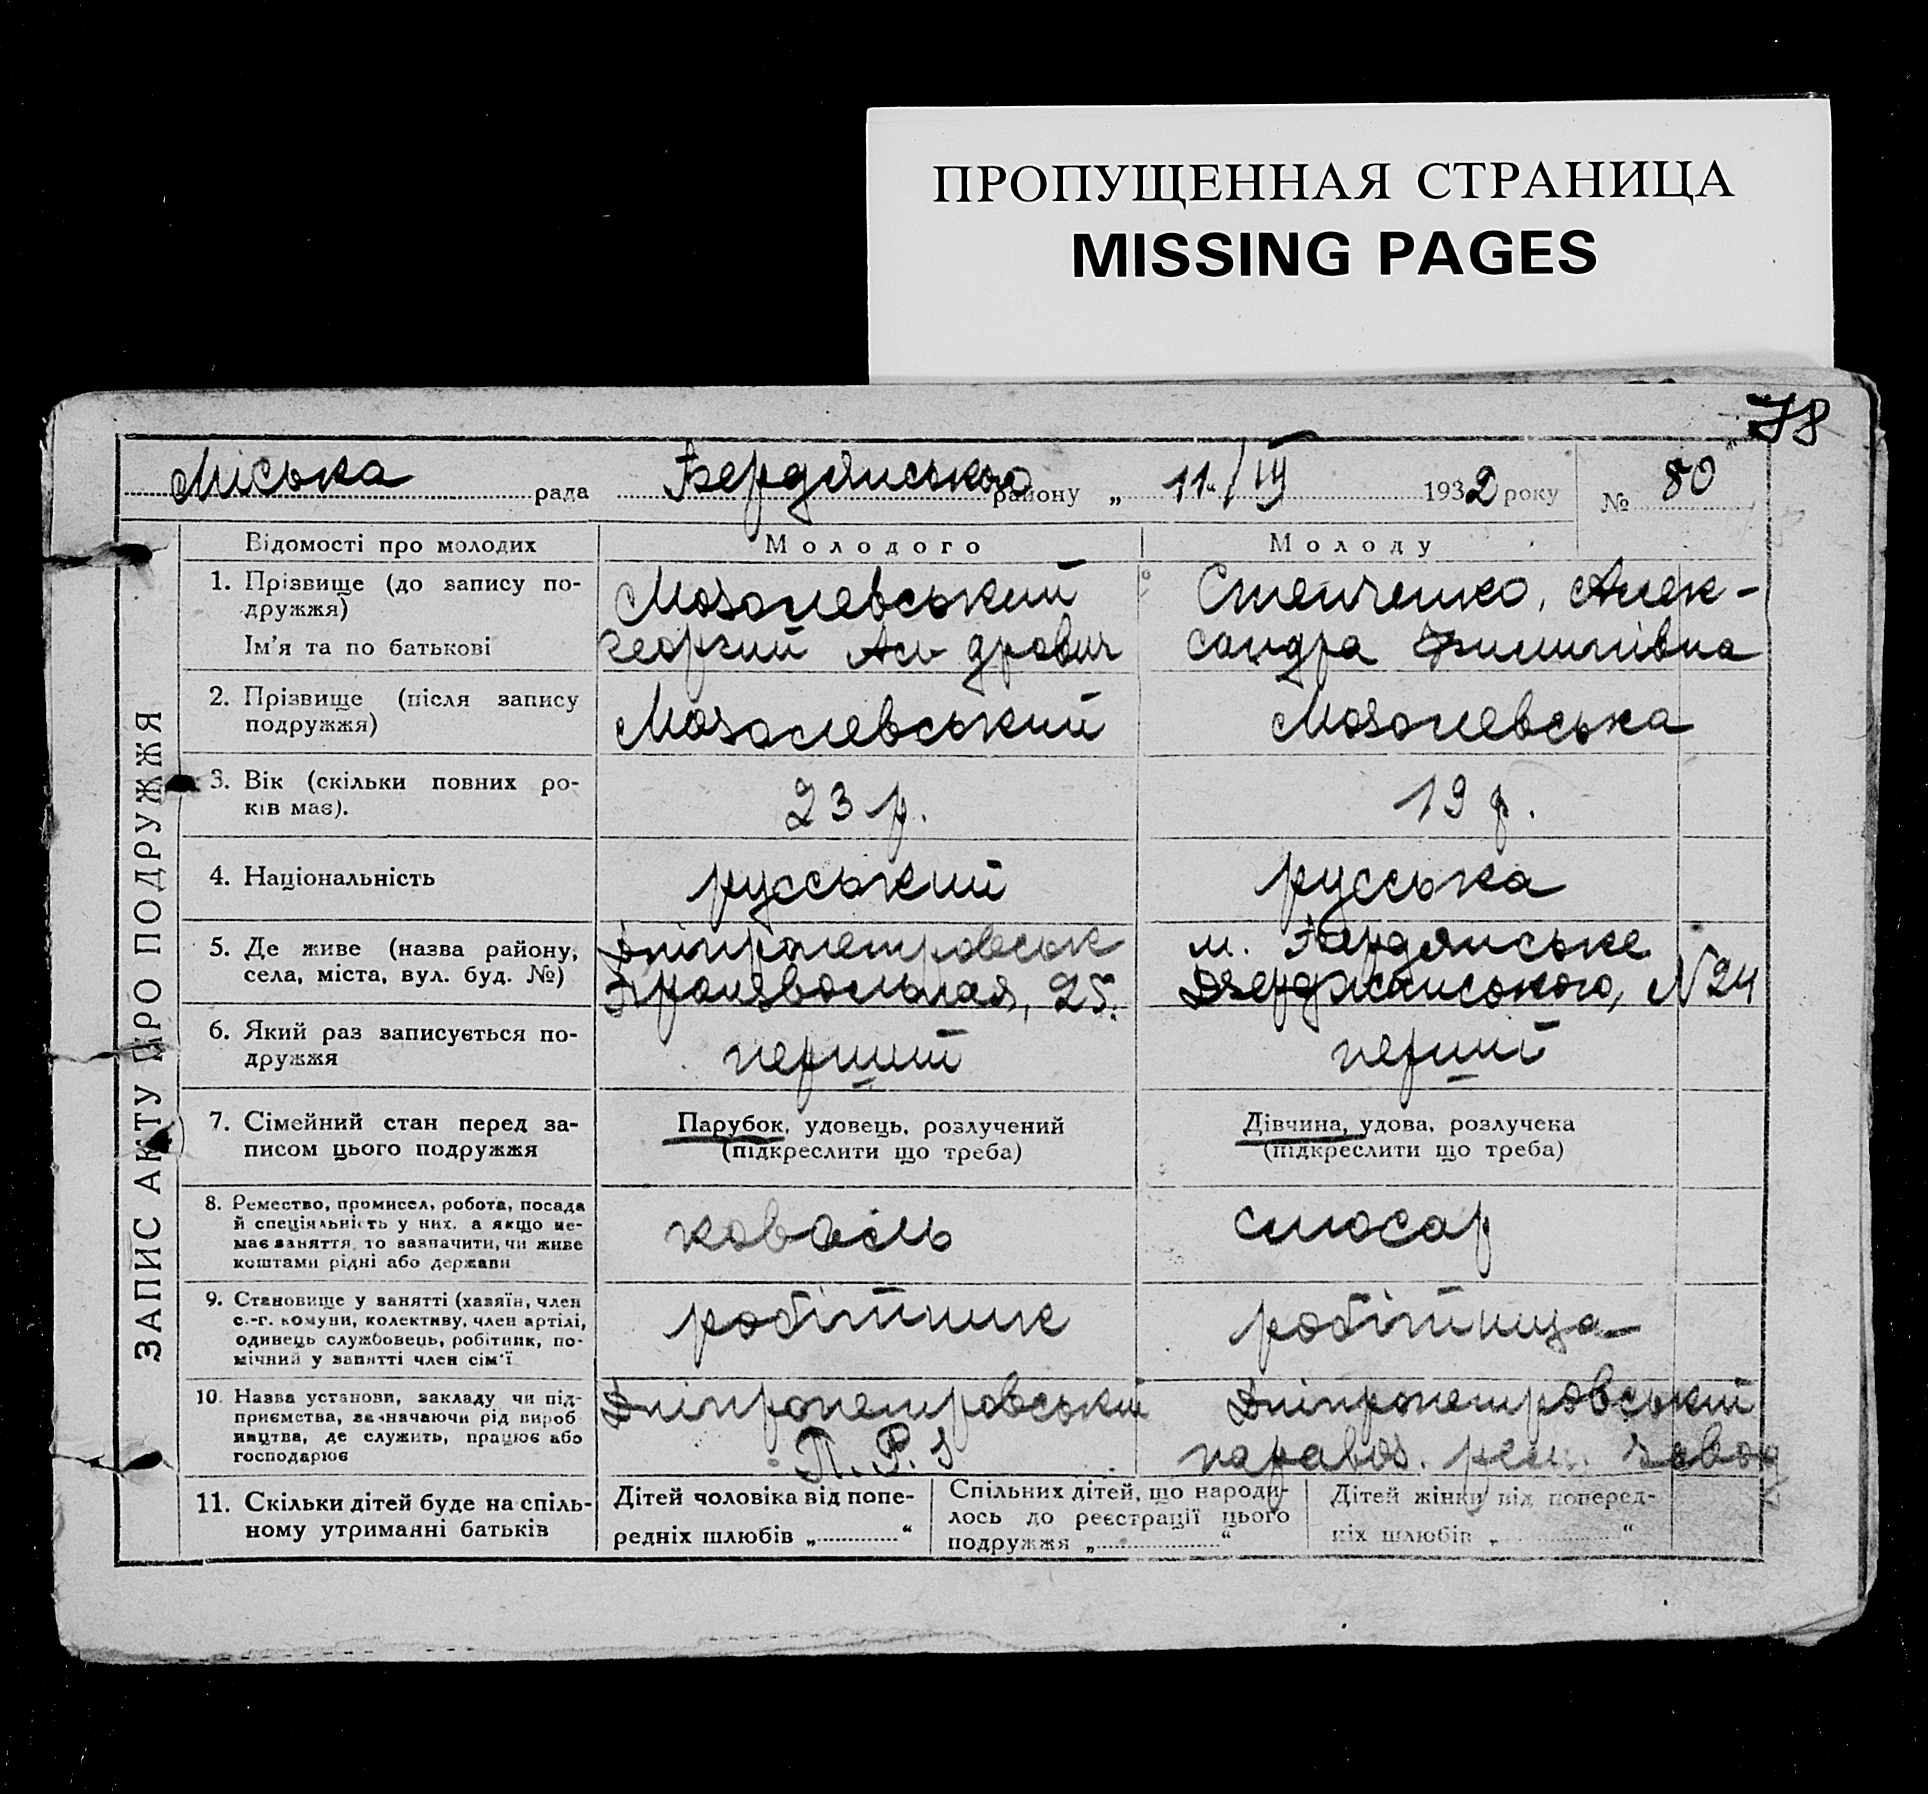 ПРОПУЩЕННАЯ СТРАНИЦА
MISSING PAGES
78
Міська рада Бердянського району „ 11/III 1932 року № 80
ЗАПИС АКТУ ПРО ПОДРУЖЖЯ
Відомості про молодих
Молодого
Молоду
1. Прізвище (до запису по-
дружжя)
Ім'я та по батькові
Мозолевський
Георгий Ал-дрович
Степченко, Алек-
сандра Филипівна
2. Прізвище (після запису
подружжя)
Мозолевський
Мозолевська
3. Вік (скільки повних ро-
ків має).
23 р.
19 р.
4. Національність
руський
руська
5. Де живе (назва району,
села, міста, вул. буд. №)
Дніпропетровськ
25.
м. Бердянське
Дзержинського, N 24
6. Який раз записується по-
дружжя
перший
перший
7. Сімейний стан перед за-
писом цього подружжя
Парубок, удовець, розлучений
(підкреслити що треба)
Дівчина, удова, розлучека
(підкреслити що треба)
8. Ремество, промисел, робота, посада
й спеціяльність у них, а якщо не-
має заняття, то зазначити, чи живе
коштами рідні або держави
коваль
слюсар
9. Становище у занятті (хазяїн, член
с.-г. комуни, колективу, член артілі,
одинець службовець, робітник, по-
мічний у занятті член сім'ї
робітник
робітниця
10. Назва установи, закладу чи під-
приємства, зазначаючи рід вироб
ництва, де служить, працює або
господарює
Дніпропетровський
П. Р. З
Дніпропетровський
паравоз. рем. завод
11. Скільки дітей буде на спіль-
ному утриманні батьків
Дітей чоловіка від попе-
редніх шлюбів „ “
Спільних дітей, що народи-
лось до реєстрації цього
подружжя „ “
Дітей жінки від поперед-
ніх шлюбів „ “